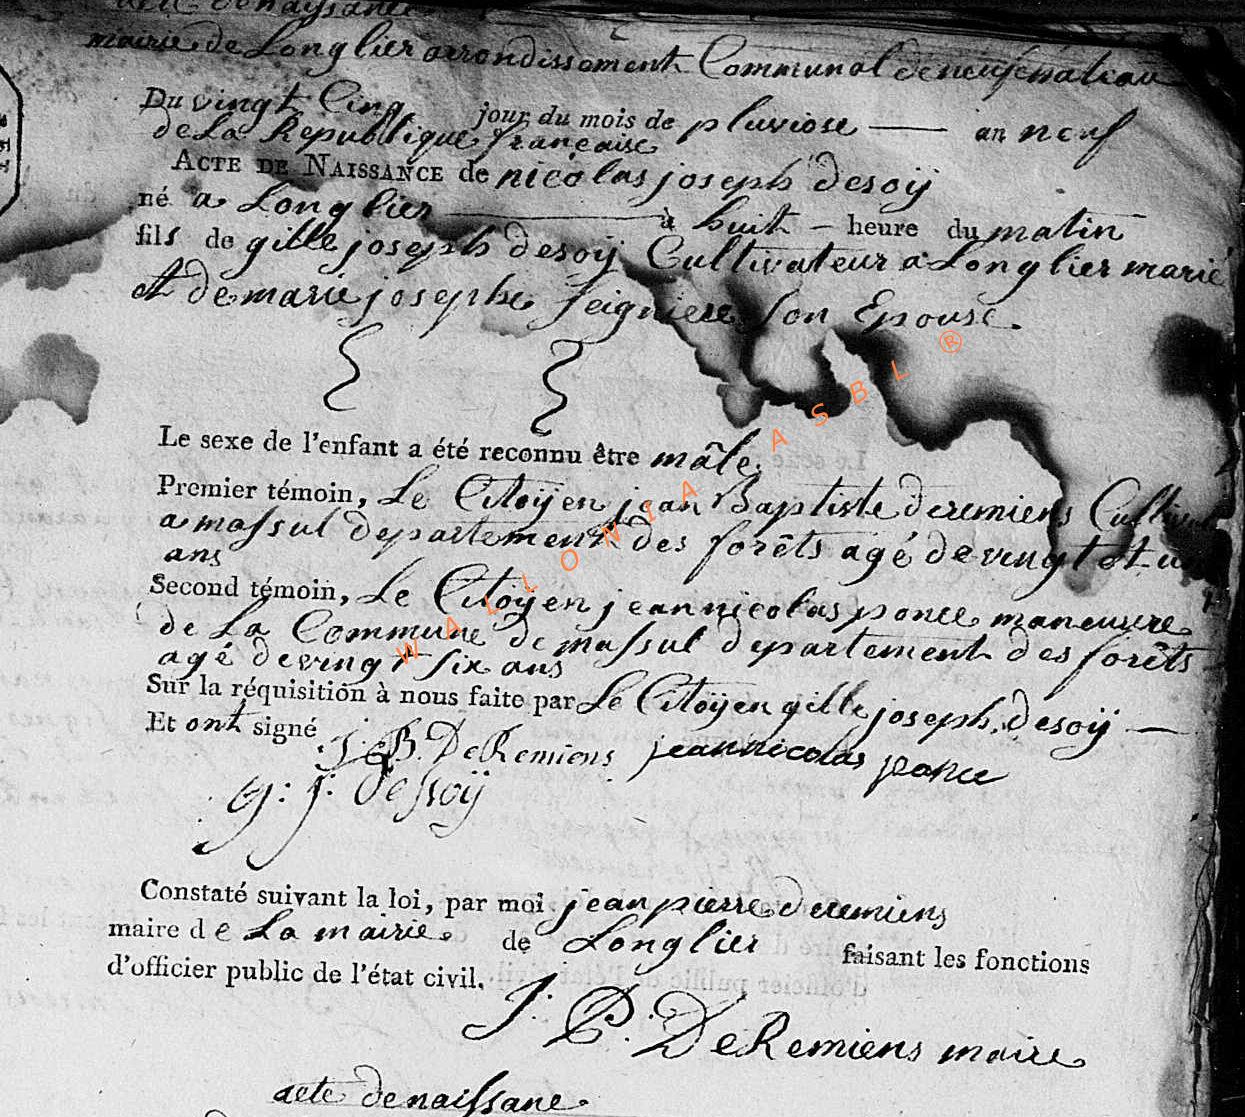 acte de naissance
mairie de Longlier arrondissement Communal de neufchateau
Du vingt Cinq jour du mois de pluviose — an neuf
de La Republique française
ACTE DE NAISSANCE de nicolas joseph desoÿ
né a Longlier — à huit — heure du matin
fils de gille joseph desoÿ Cultivateur a Longlier marié
et de marie josephe seigniere son Epouse.
Le sexe de l'enfant a été reconnu être mâle.
Premier témoin, Le Citoÿen jean Baptiste deremiens
a massul departement des forêts agé de vingt et un
ans
Second témoin, Le Citoÿen jean nicolas ponce maneuvre
de La Commune de massul departement des forêts
agé de vingt six ans
Sur la réquisition à nous faite par Le Citoÿen gille joseph desoÿ —
Et ont signé
J. B. DeRemiens jean nicolas ponce
g: j: dessoÿ
Constaté suivant la loi, par moi jean pierre deremiens
maire de La mairie de Longlier faisant les fonctions
d'officier public de l'état civil.
J: P: DeRemiens maire
acte de naissane
WALLONIA ASBL ®